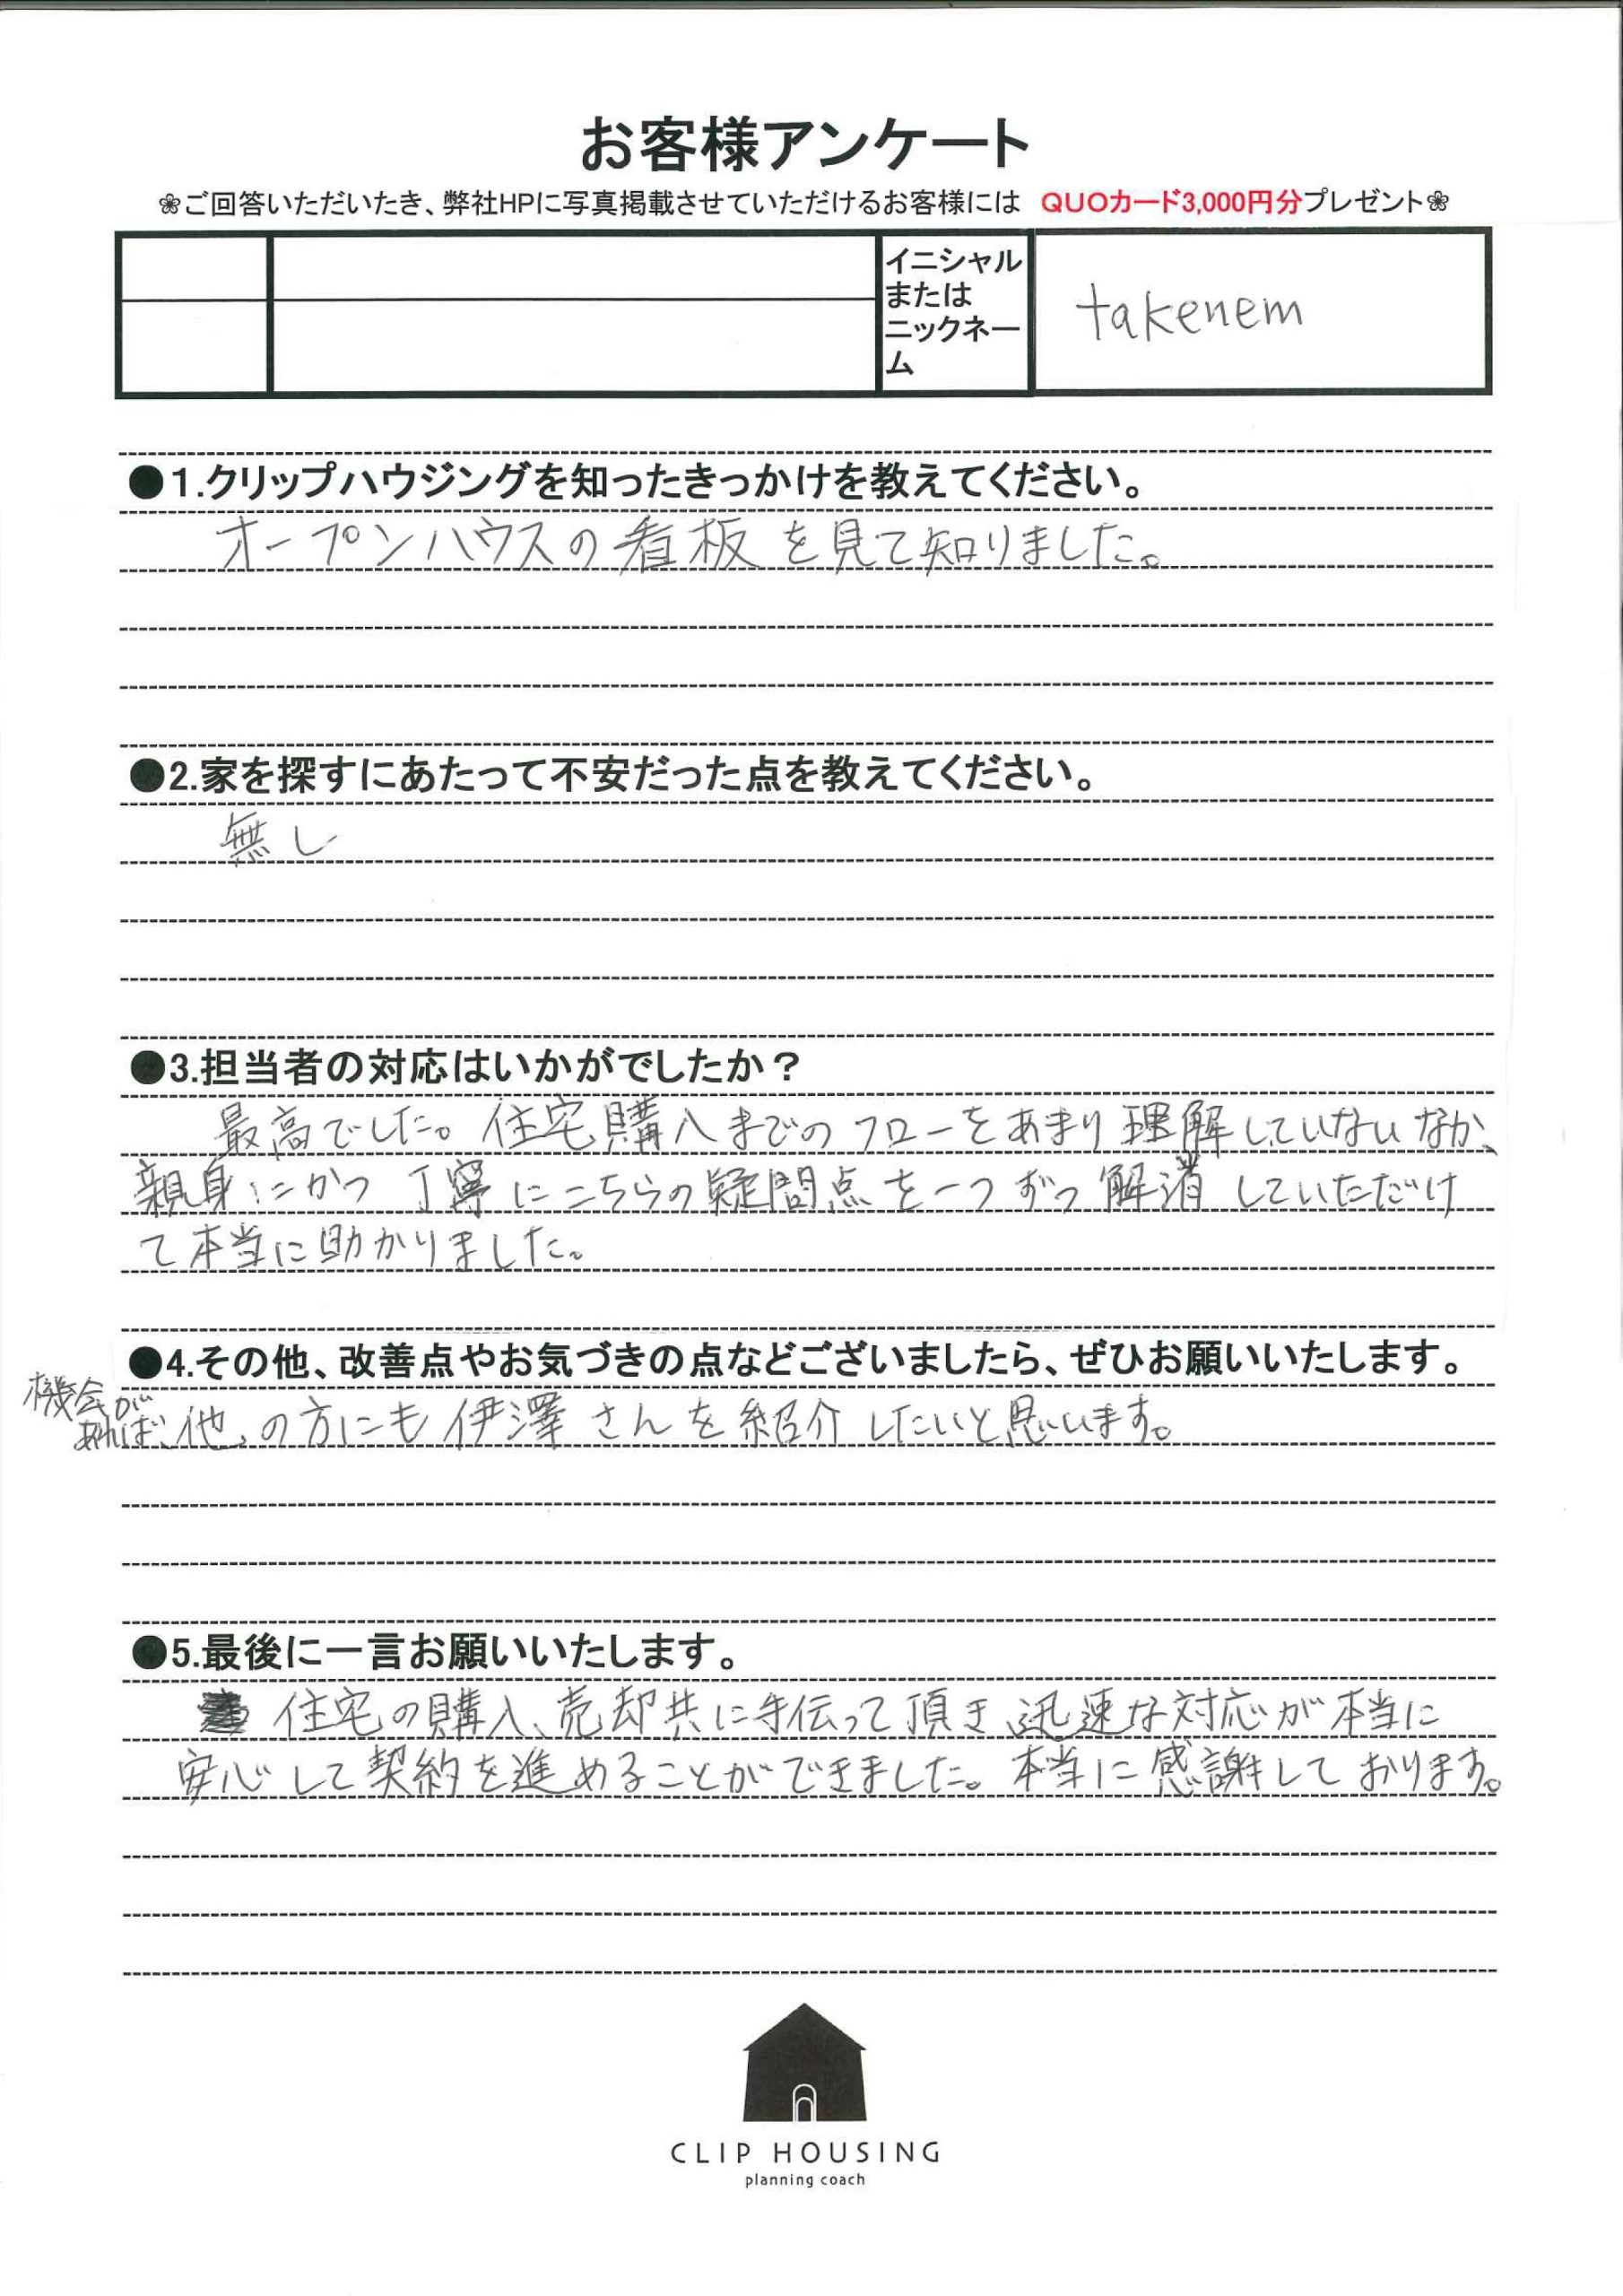 お客様アンケート
❀ご回答いただいたき、弊社HPに写真掲載させていただけるお客様には QUOカード3,000円分プレゼント❀
イニシャル
または
ニックネー
ム
takenem
●1.クリップハウジングを知ったきっかけを教えてください。
オープンハウスの看板を見て知りました。
●2.家を探すにあたって不安だった点を教えてください。
無し
●3.担当者の対応はいかがでしたか？
最高でした。住宅購入までのフローをあまり理解していないなか、
親身にかつ丁寧にこちらの疑問点を一つずつ解消していただけ
て本当に助かりました。
●4.その他、改善点やお気づきの点などございましたら、ぜひお願いいたします。
機会が
あれば、他の方にも伊澤さんを紹介したいと思います。
●5.最後に一言お願いいたします。
住宅の購入、売却共に手伝って頂き、迅速な対応が本当に
安心して契約を進めることができました。本当に感謝しております。
CLIP HOUSING
planning coach